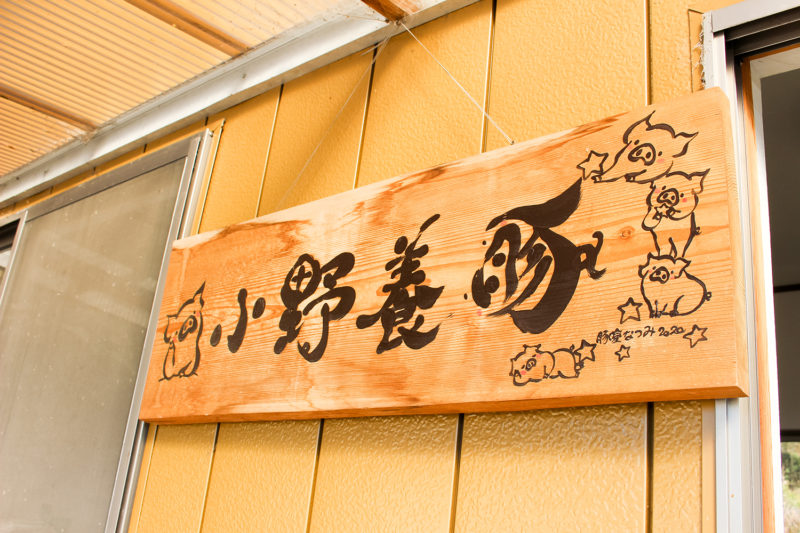 小野養豚
豚座なつみ2020